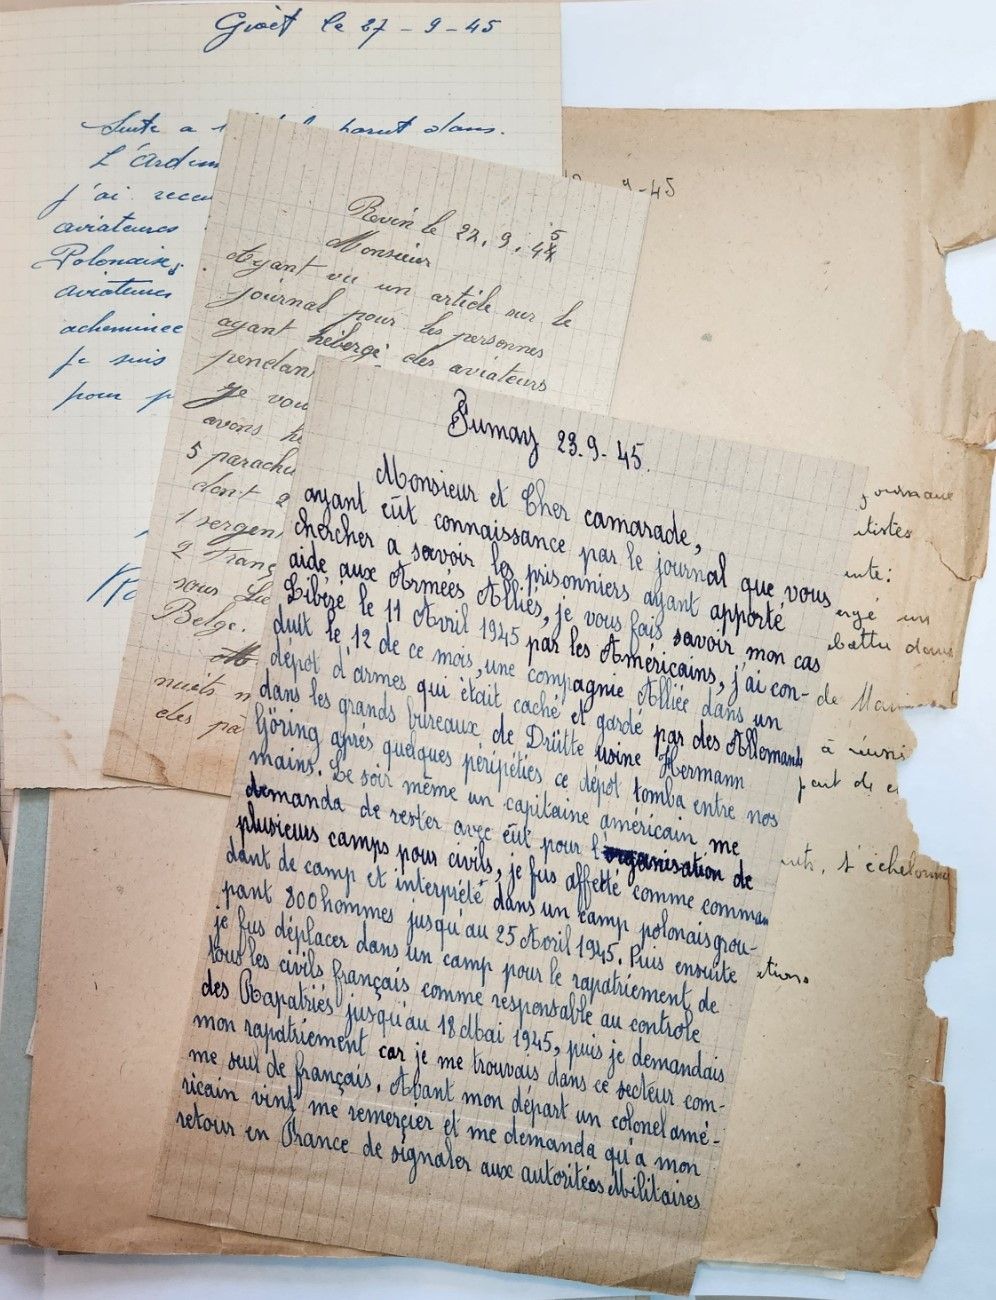 Givet le 27-9-45
Suite a parut dans
L'Ardenn
j'ai recu
aviateurs
Polonais,
aviateurs
acheminee
je suis
pour p
9-45
Revin le 27.9.45
Monsieur
Ayant vu un article sur le
journal pour les personnes
ayant hébergé des aviateurs
pendan
Je vou
avons hé
5 parachu
dont 2
1 sergen
2 Franç
sous Lie
Belge.
M
nuits n
des pa
Fumay 23.9.45.
Monsieur et Cher camarade,
ayant eût connaissance par le journal que vous
chercher a savoir les prisonniers ayant apporté
aide aux Armées Alliés, je vous fais savoir mon cas
Libéré le 11 Avril 1945 par les Américains, j'ai con-
duit le 12 de ce mois, une compagnie Alliée dans un
dépôt d'armes qui était caché et gardé par des Allemands
dans les grands bureaux de Drütte usine Hermann
Göring aprés quelques péripéties ce dépot tomba entre nos
mains. Le soir même un capitaine américain me
demanda de rester avec eût pour l'organisation de
plusieurs camps pour civils, je fus affetté comme comman
dant de camp et interprété dans un camp polonais grou-
pant 800 hommes jusqu'au 25 Avril 1945. Puis ensuite
je fus déplacer dans un camp pour le rapatriement de
tous les civils français comme responsable au controle
des Rapatriés jusqu'au 18 Mai 1945, puis je demandais
mon rapatriement car je me trouvais dans ce secteur com-
me seul de français. Avant mon départ un colonel amé-
ricain vint me remerçier et me demanda qu'a mon
retour en France de signaler aux autoritées Militaires
journaux
tistes
unte:
ergé un
battu dans
de
à réuni
part de
nts, s'échelonne
ations